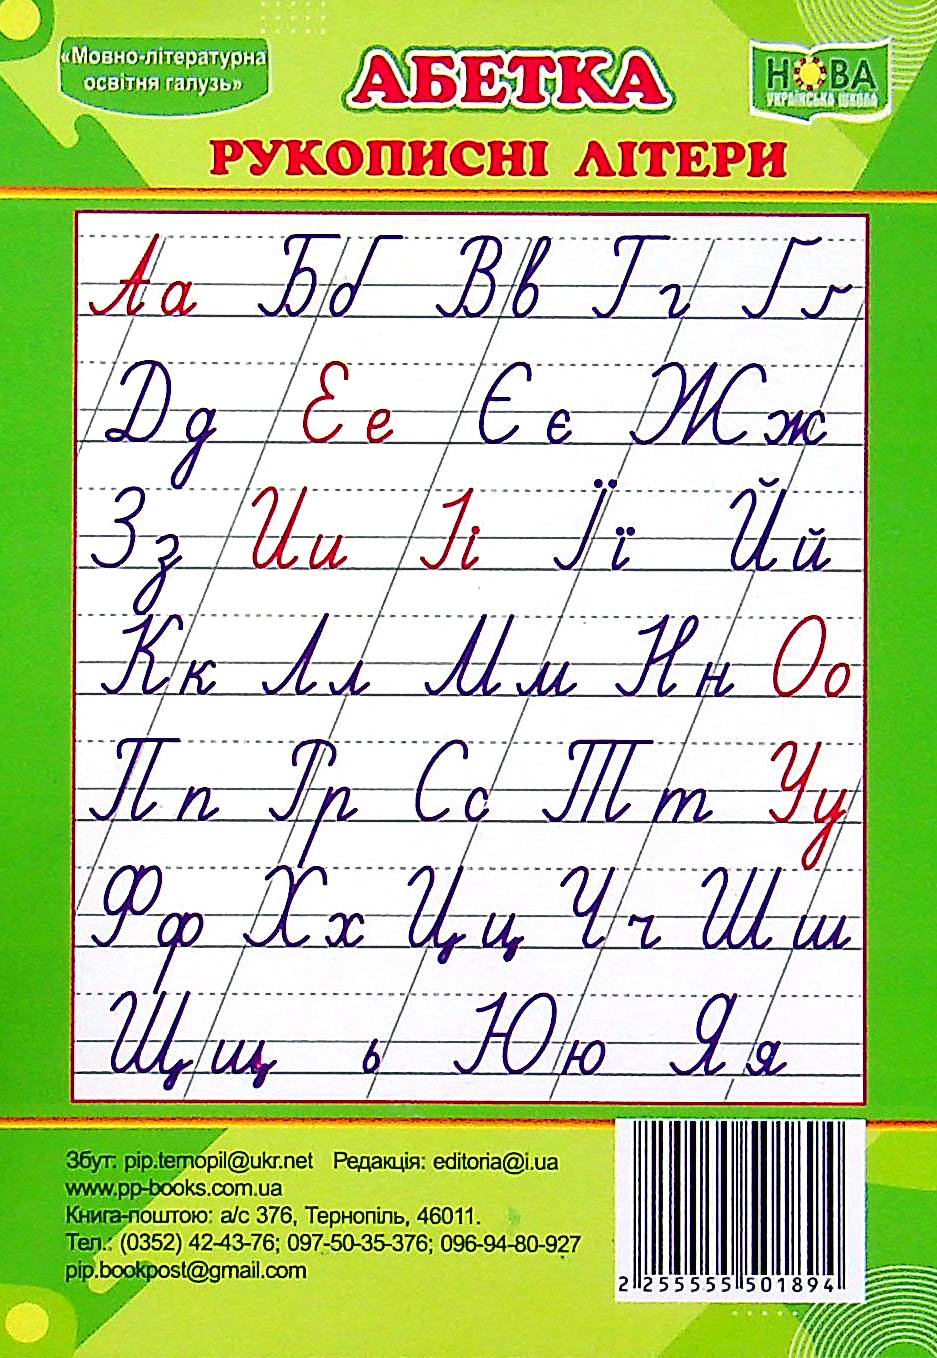 «Мовно-літературна
освітня галузь»
АБЕТКА
НОВА
УКРАЇНСЬКА ШКОЛА
РУКОПИСНІ ЛІТЕРИ
Аа Бб Вв Гг Ґґ
Дд Ее Єє Жж
Зз Ии Іі Її Йй
Кк Лл Мм Нн Оо
Пп Рр Сс Тт Уу
Фф Хх Цц Чч Шш
Щщ ь Юю Яя
Збут: pip.ternopil@ukr.net Редакція: editoria@i.ua
www.pp-books.com.ua
Книга-поштою: а/с 376, Тернопіль, 46011.
Тел.: (0352) 42-43-76; 097-50-35-376; 096-94-80-927
pip.bookpost@gmail.com
2 255555 501894